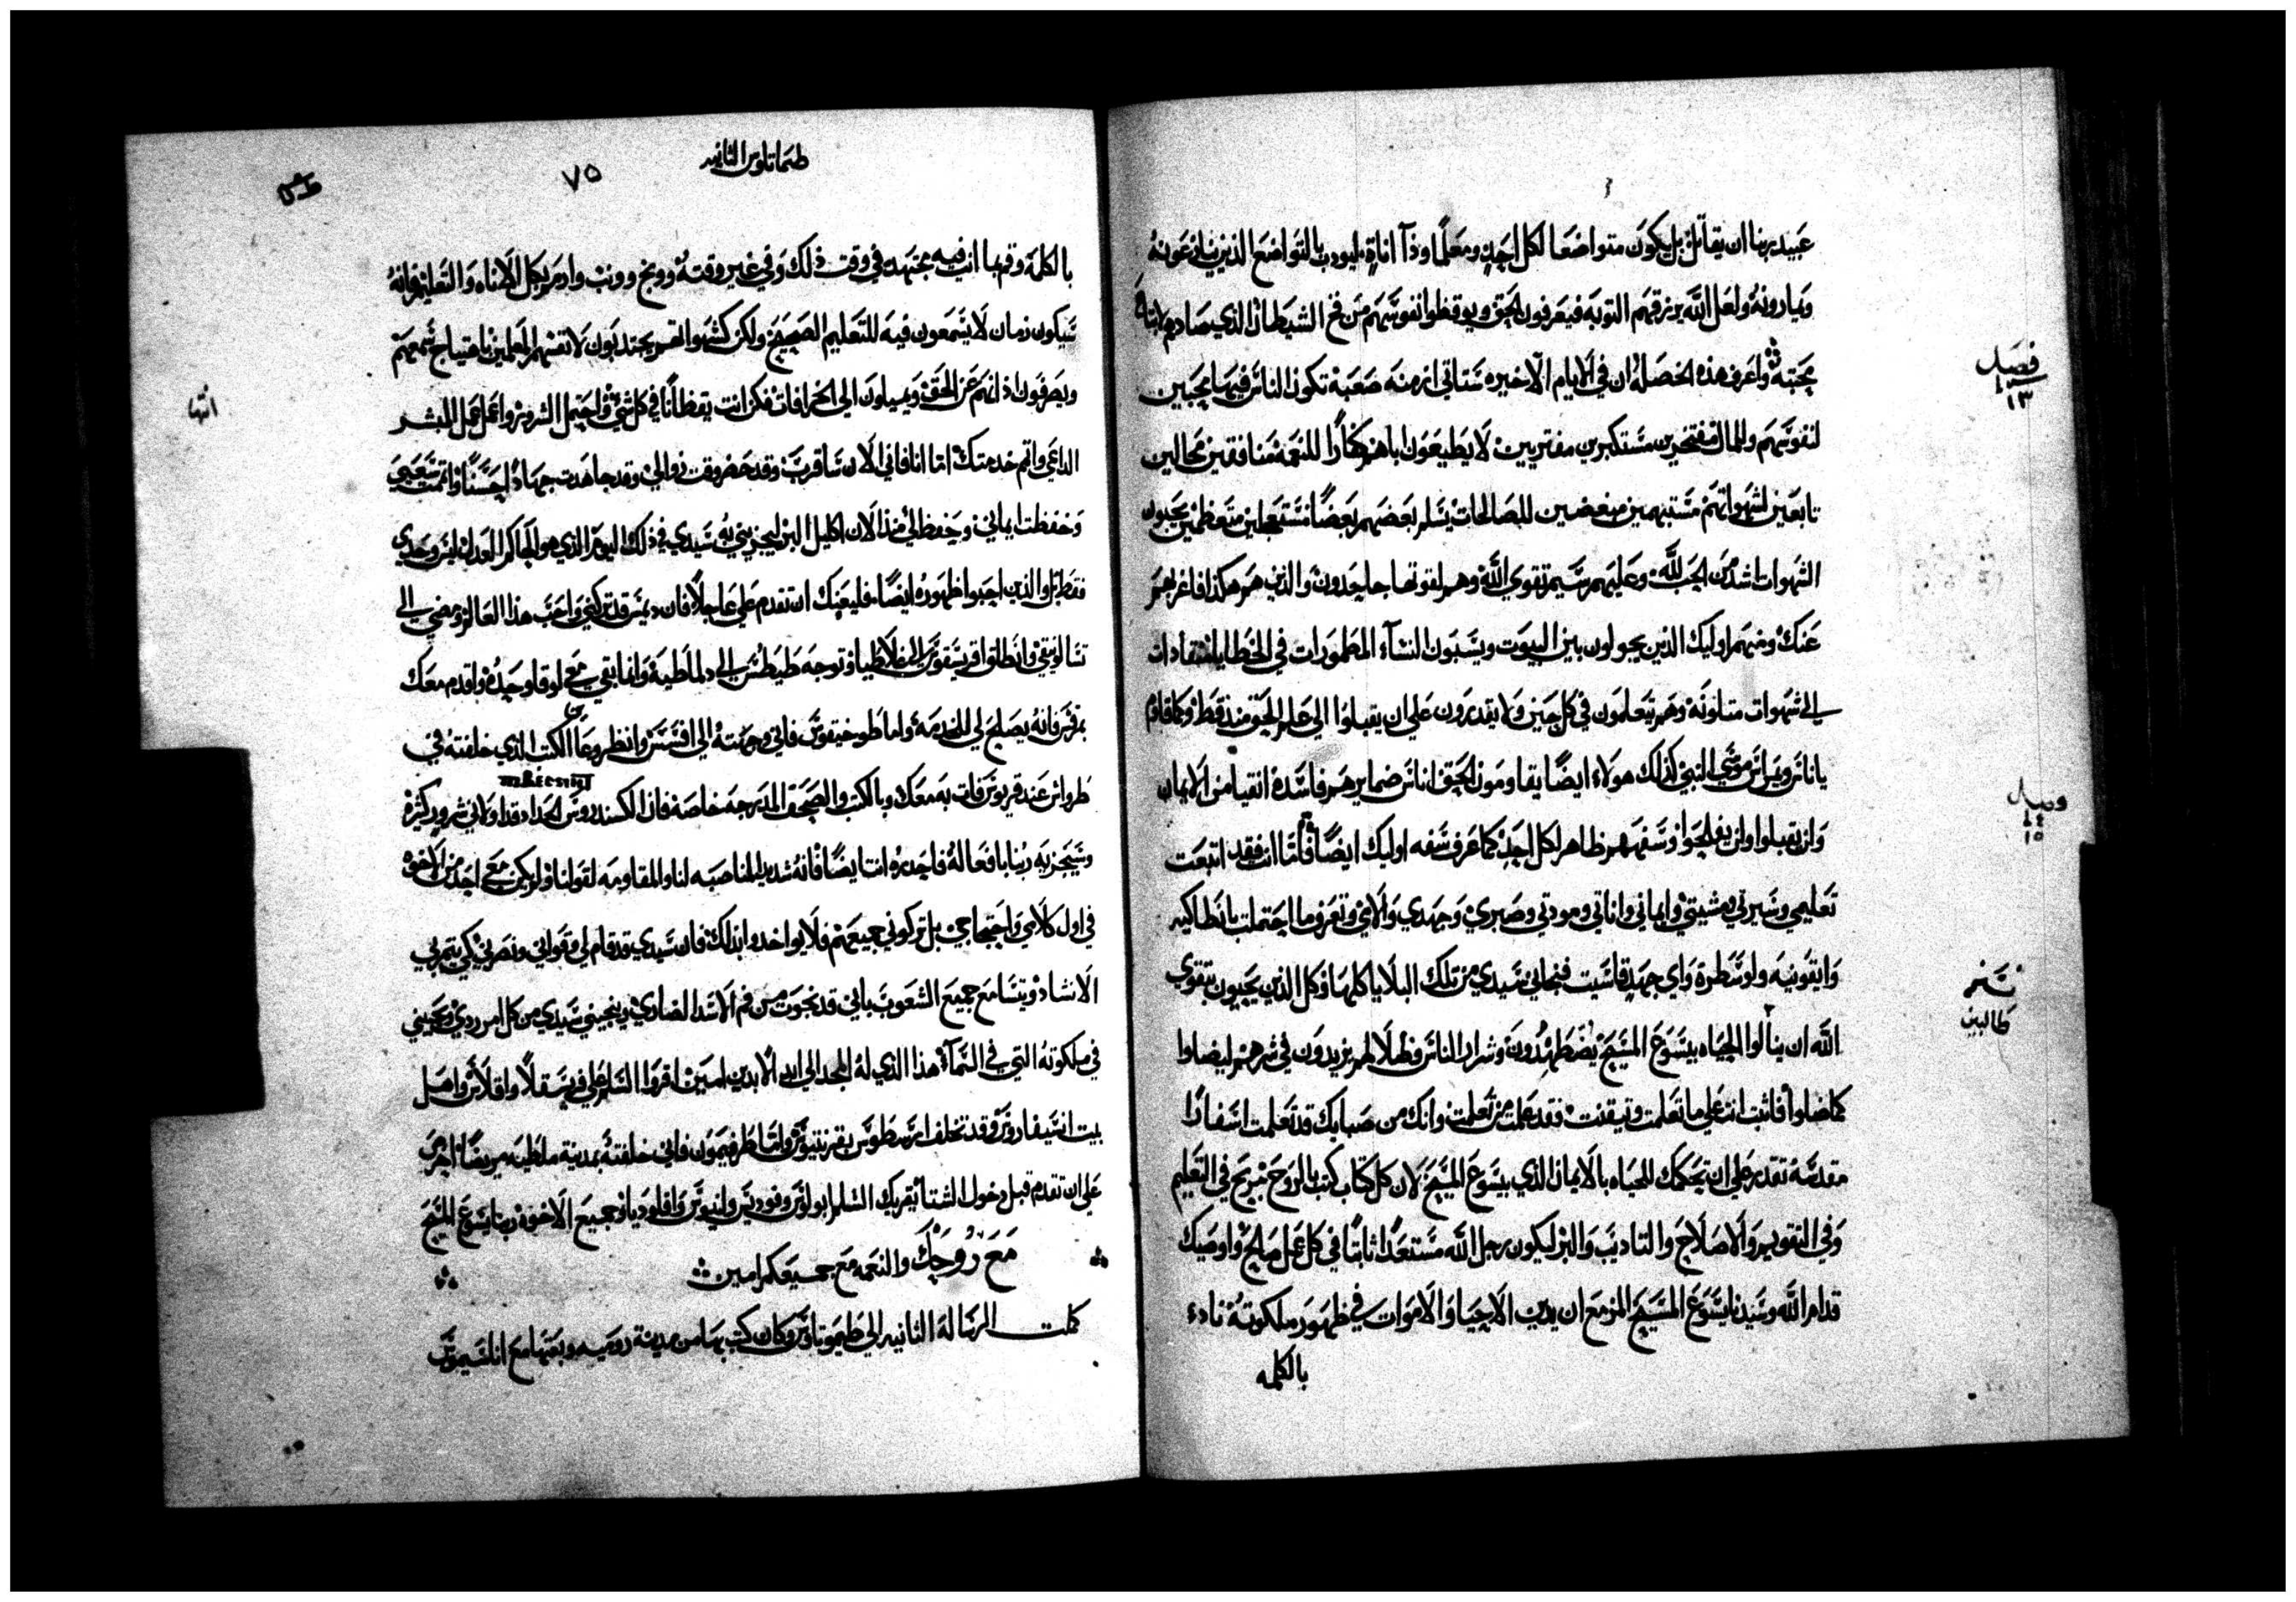 عبيد ربنا ان يقاتل بل يكون متواضعا لكل احد ومعلما وذا اناة ليودب بالتواضع الذين ينازعونه
ويمارونه ولعل الله يرزقهم التوبة فيعرفون الحق ويوقظوا نفوسهم من فخ الشيطان الذي صادهم
محبته واعرف هذه الخصلة ان في الايام الاخيره ستاتي ازمنه صعبة تكون الناس فيها محبين
فصل
١٣
لنفوسهم والمال مفتخرين مستكبرين مفتريين لا يطيعون اباهم كفارا للنعمة منافقين محالين
تابعين لشهواتهم مشتبهين مبغضين للصالحات يسلم بعضهم بعضا مستعجلين متعظمين يحبون
الشهوات اشد من الحب لله وعليهم رسيم تقوي الله وهم لقوتها جاحدون والذين هم هكذا فاغربهم
عنك ومنهم اوليك الذين يجولون بين البيوت ويسبون النسآء المطمورات في الخطايا المنقادات
الى شهوات متلونة وهم يتعلمون في كل حين ولا يقدرون على ان يقبلوا الى علم الحق منذ قط وكما قاوم
ياناس ويمبراس موسى النبي كذلك هولاء ايضا يقاومون الحق اناس ضمايرهم فاسدة انقيا من الايمان
وصل
١٤
١٥
وان يقبلوا ولن يفلحوا وسفههم ظاهر لكل احد كما عرف سفه اوليك ايضا فاما انت فقد اتبعت
تعليمي وسيرتي ومشيتي وايماني واناتي ومودتي وصبري وجهدي والامي وتعرف ما احتملت بانطاكيه
وايقونيه ولوسطرة واي جهد قاسيت فنجاني سيدي من تلك البلايا كلها وكل الذين يحبون بتقوي
الله ان ينالوا الحياه بيسوع المسيح يضطهدون وشرار الناس وظلالهم يزيدون في شرهم ليضلوا
كما ضلوا فاثبت انت على ما تعلمت وتيقنت فقد علمت من تعلمت وانك من صبايك قد تعلمت اسفارا
مقدسة تقدر على ان تحكمك للحياه بالايمان الذي بيسوع المسيح لان كل كتاب كتب بالروح مربح في التعليم
وفي التقويم والاصلاح والتاديب والبر ليكون رجل الله مستعدا ثابتا في كل عمل صالح واوصيك
قدام الله وسيدنا يسوع المسيح المزمع ان يدين الاحيا والاموات في ظهور ملكوته نادء
بالكلمه
طيماتاوس الثانيه
٧٥
بالكلمة وقم بها انت فيه مجتهد في وقت ذلك وفي غير وقته ووبخ وونب وادمر بكل الاناه والتعليم فانه
سيكون زمان لا يسمعون فيه للتعليم الصحيح ولكن كشهواتهم يجتذبون لانفسهم المعلمين باهتياج سمعهم
ويصرفون اذانهم عن الحق ويميلون الى الخرافات فكن انت يقظانا في كل شي واحتمل الشرور واعمل عمل المبشر
انتها
الداعي واتم خدمتك اما انا فاني الان ساقرب وقد حضر وقت زوالي وقد جاهدت جهادا حسنا واتممت سعيي
وحفظت ايماني وحفظ لي منذ الان اكليل البر ليجزيني به سيدي في ذلك اليوم الذي هو الحاكم العدل ليس وحدي
فقط بل والذين احبوا ظهوره ايضا فليعنك ان تقدم علي عاجلا فان ديمس قد تركني واحب هذا العالم ومضي الى
تسالونيقي وانطلق اقريسقوس الى غلاطيا وتوجه طيطس الى دلماطية وانما بقي معي لوقا وحده واقدم معك
بمرقس فانه يصلح لي للخدمة واما طوخيقوس فاني وجهته الى افسس وانظر وعا الكتب الذي خلفته في
طرواس عند قربوس فات به معك وبالكتب والصحف المدرجه خاصة فان الكسندروس الحداد قد اولاني شرور كثيرة
وسيجزيه ربنا بافعاله فاحذره انت ايضا فانه شديد المناصبه لنا والمقاومه لقولنا ولم يكن معي احد من الاخوه
في اول كلامي واحتجاجي بل تركوني جميعهم فلا يواخدوا بذلك فان سيدي قد قام لي وقواني ونصرني كي تتم بي
الانشاد ويتسامع جميع الشعوب باني قد نجوت من فم الاسد الضاري وينجيني سيدي من كل امر ردي ويحييني
في ملكوته التي في السمآء هذا الذي له المجد الى ابد الابدين امين اقروا السلم على فرسقلا واقلاس واهل
بيت انسيفاروس وقد تخلف ارسطوس بقرنتيوس واما طرفيمون فاني خلفته بمدينة ملطيه مريضا احرص
على ان تقدم قبل دخول الشتا يقريك السلم ابولوس وفوديس ولينوس واقلوديا وجميع الاخوة ربنا يسوع المسيح
مع روحك والنعمه مع جميعكم امين
كملت الرسالة الثانيه الى طيموتاوس وكان كتب بها من مدينة روميه وبعثها مع انلسيموس